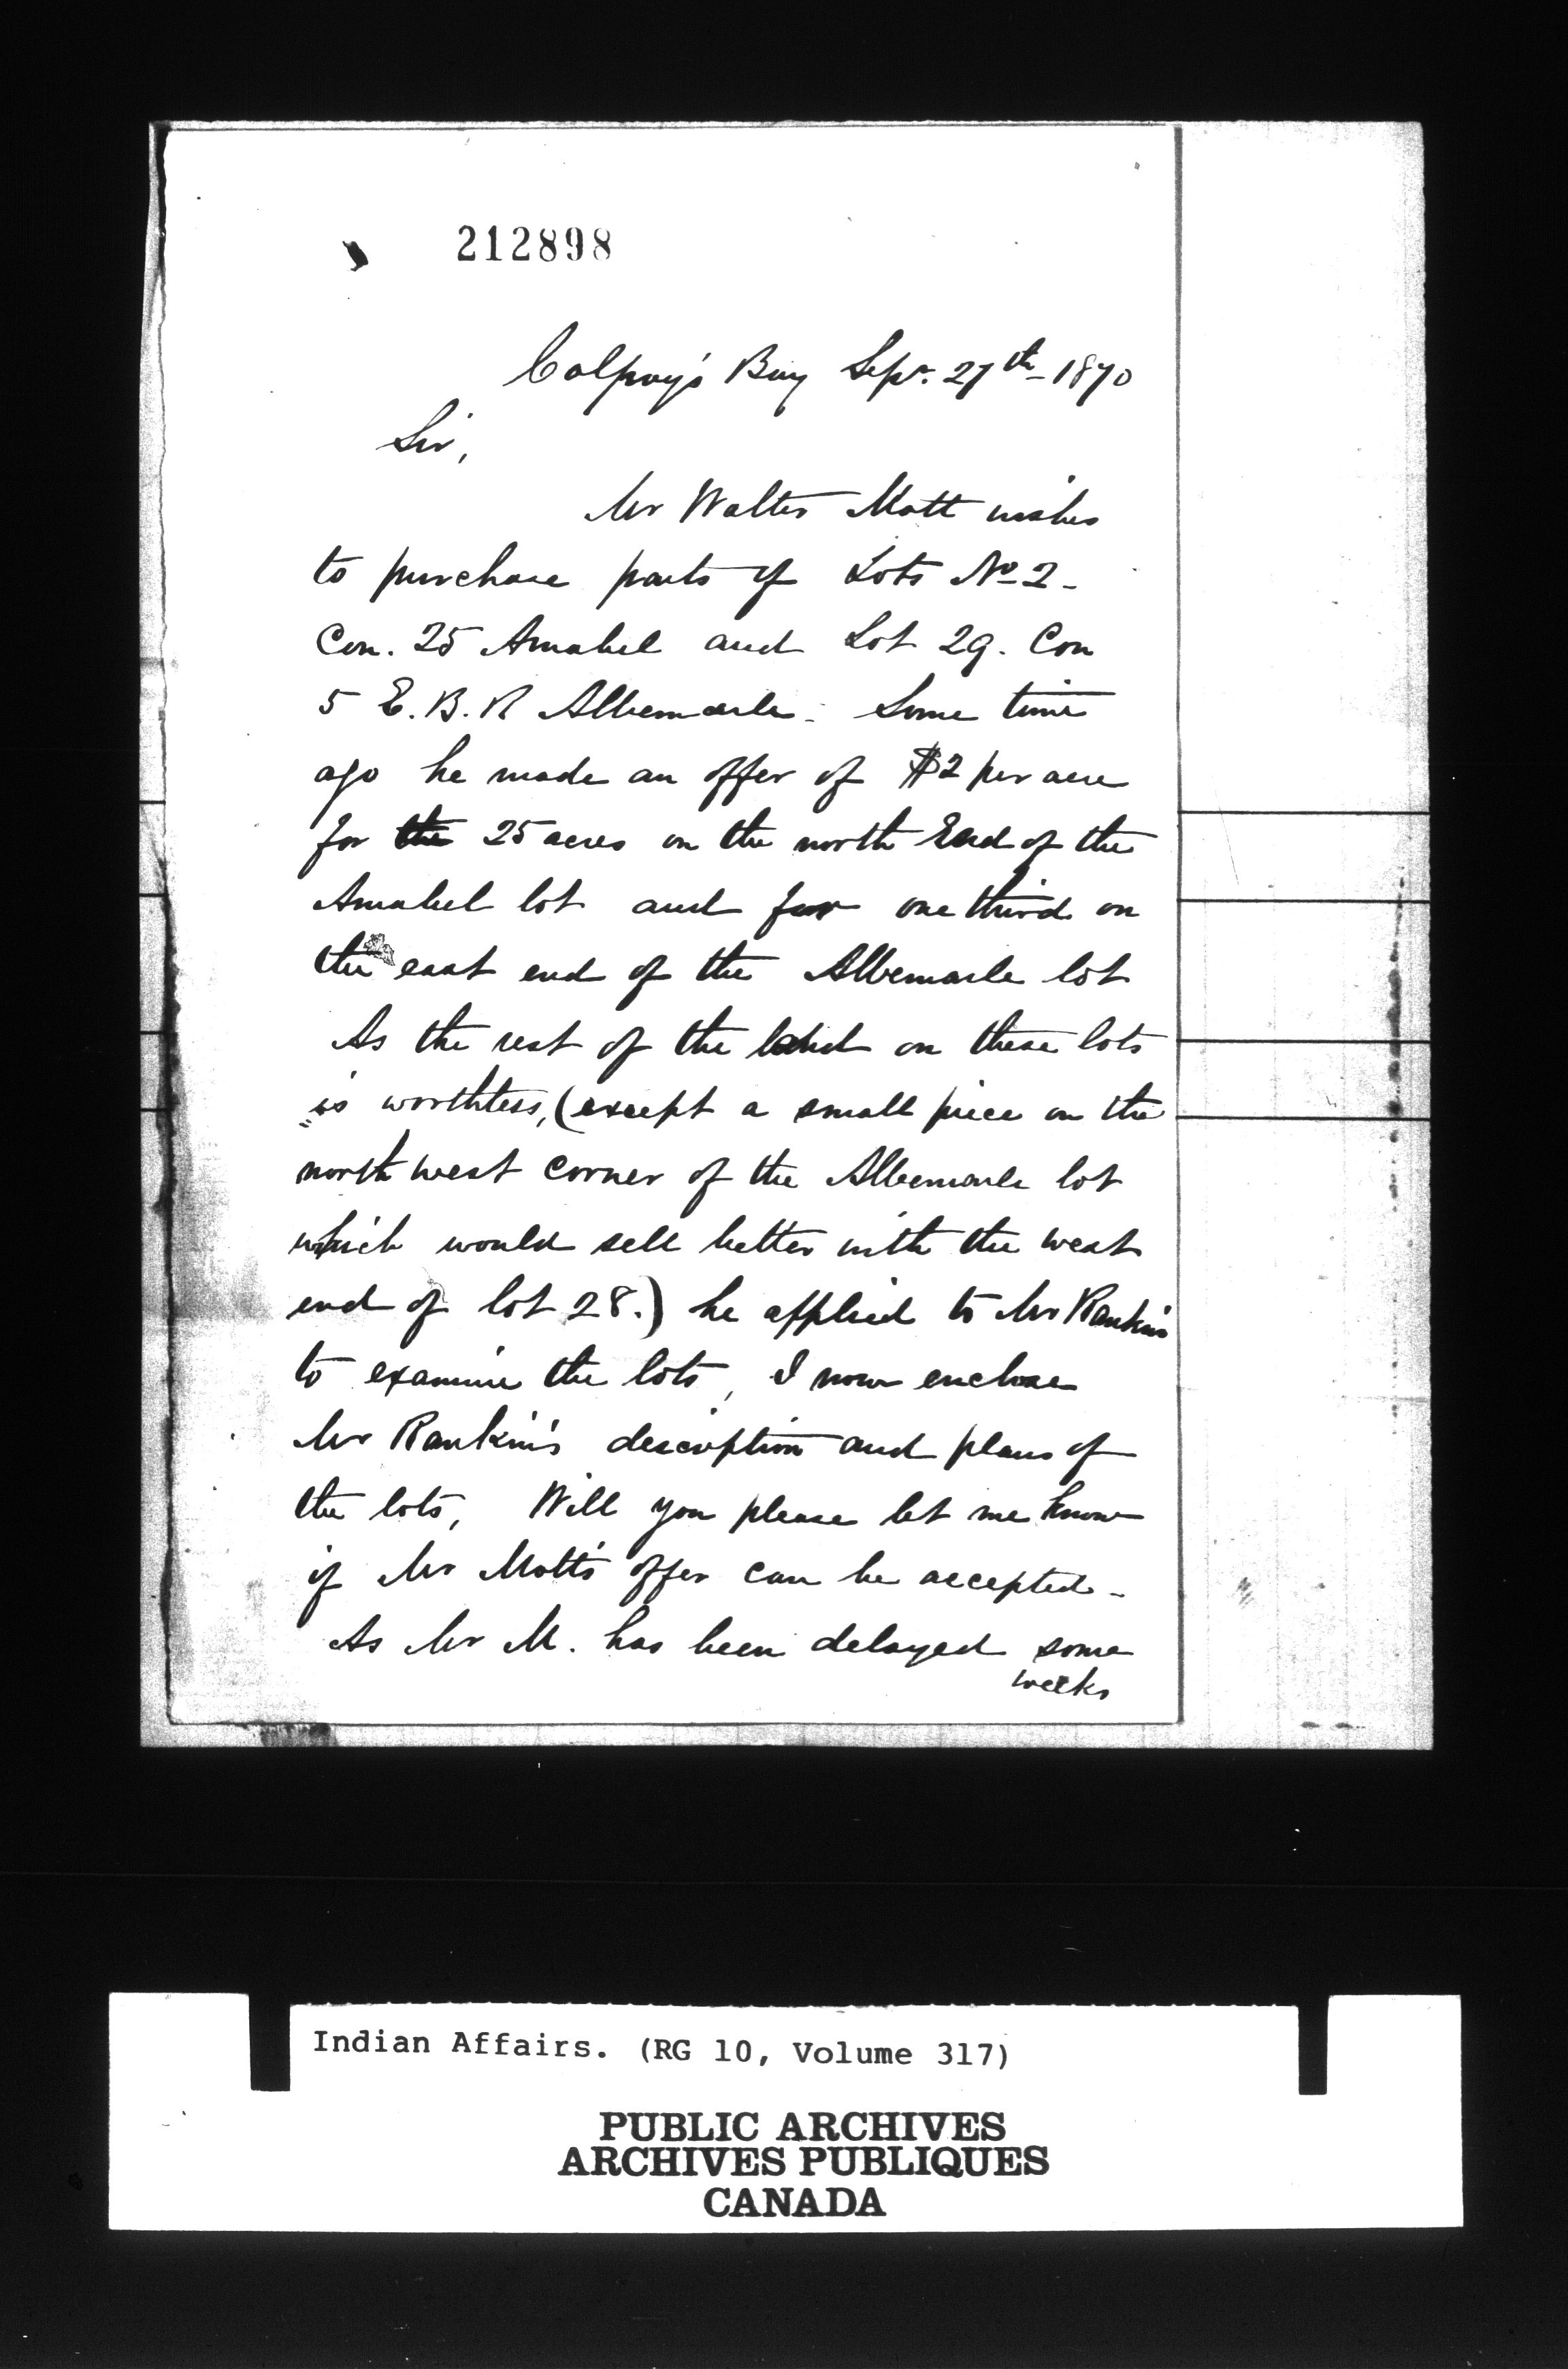 212898
Colpoy's Bay Sepr. 27th - 1870
Sir,
Mr Walter Mott wishes
to purchase parts of Lots No 2 -
Con. 25 Amabel and Lot 29. Con
5 E. B. R Albemarle. Some time
ago he made an offer of $2 per acre
for the 25 acres on the north End of the
Amabel lot and for one third on
the east end of the Albemarle lot
As the rest of the land on these lots
is worthless, (except a small piece on the
north west corner of the Albemarle lot
which would sell better with the west
end of lot 28.) he applied to Mr Rankin
to examine the lots, I now enclose
Mr Rankin's description and plans of
the lots, Will you please let me know
if Mr Mott's offer can be accepted -
As Mr M. has been delayed some
weeks
Indian Affairs. (RG 10, Volume 317)
PUBLIC ARCHIVES
ARCHIVES PUBLIQUES
CANADA